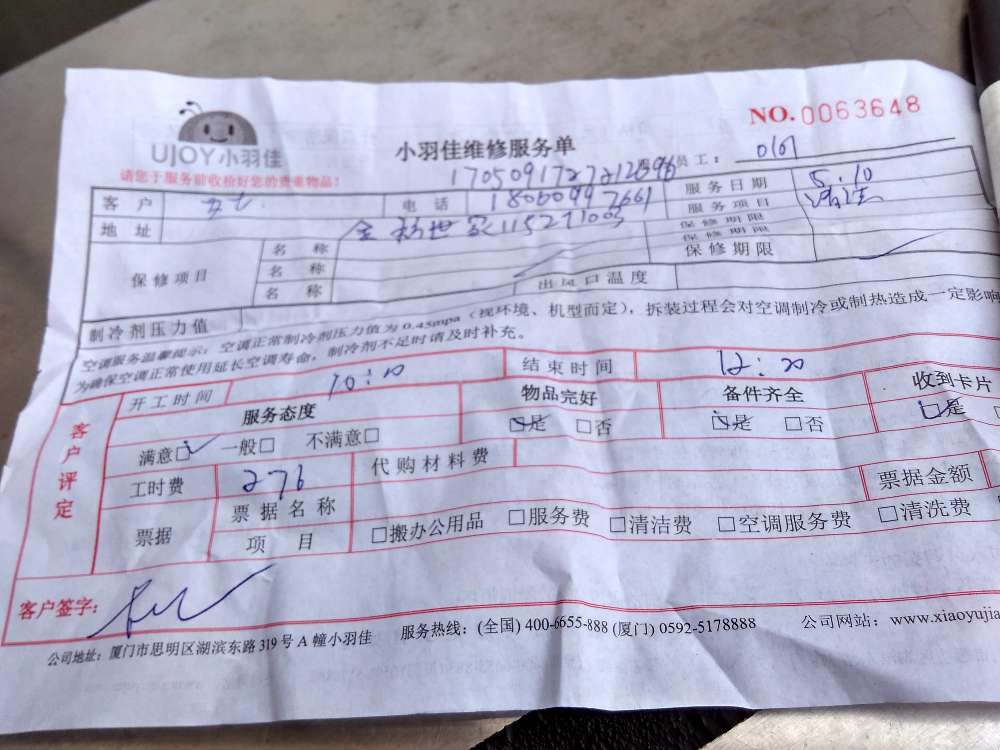 NO.0063648
UJOY小羽佳
小羽佳维修服务单
请您于服务前收检好您的贵重物品!
员工: 0101
客户 电话 18060997661 服务日期 5.10
服务项目
地址 保修期限
保修期限
保修期限
保修项目
名称
名称
名称
出风口温度
制冷剂压力值
空调服务温馨提示:空调正常制冷剂压力值为0.45mpa(视环境、机型而定),拆装过程会对空调制冷或制热造成一定影响
为确保空调正常使用延长空调寿命,制冷剂不足时请及时补充。
开工时间 10:10 结束时间 12:20
客户评定
服务态度 物品完好 备件齐全 收到卡片
满意□ 一般□ 不满意□ □是 □否 □是 □否 □是
工时费 276 代购材料费
票据 票据名称 票据金额
项目 □搬办公用品 □服务费 □清洁费 □空调服务费 □清洗费
客户签字:
公司地址:厦门市思明区湖滨东路319号A幢小羽佳 服务热线:(全国) 400-6655-888 (厦门) 0592-5178888 公司网站:www.xiaoyujia